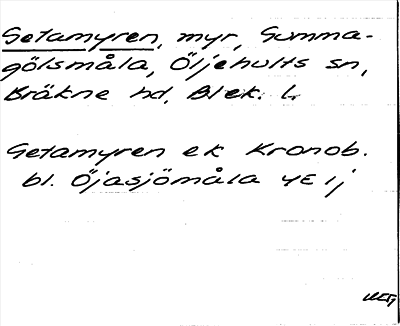 Getamyren, myr, Gumma-
gölsmåla, Öljehults sn,
Bräkne hd, Blek. l.
Getamyren ek Kronob.
bl. Öjasjömåla 4E 1j